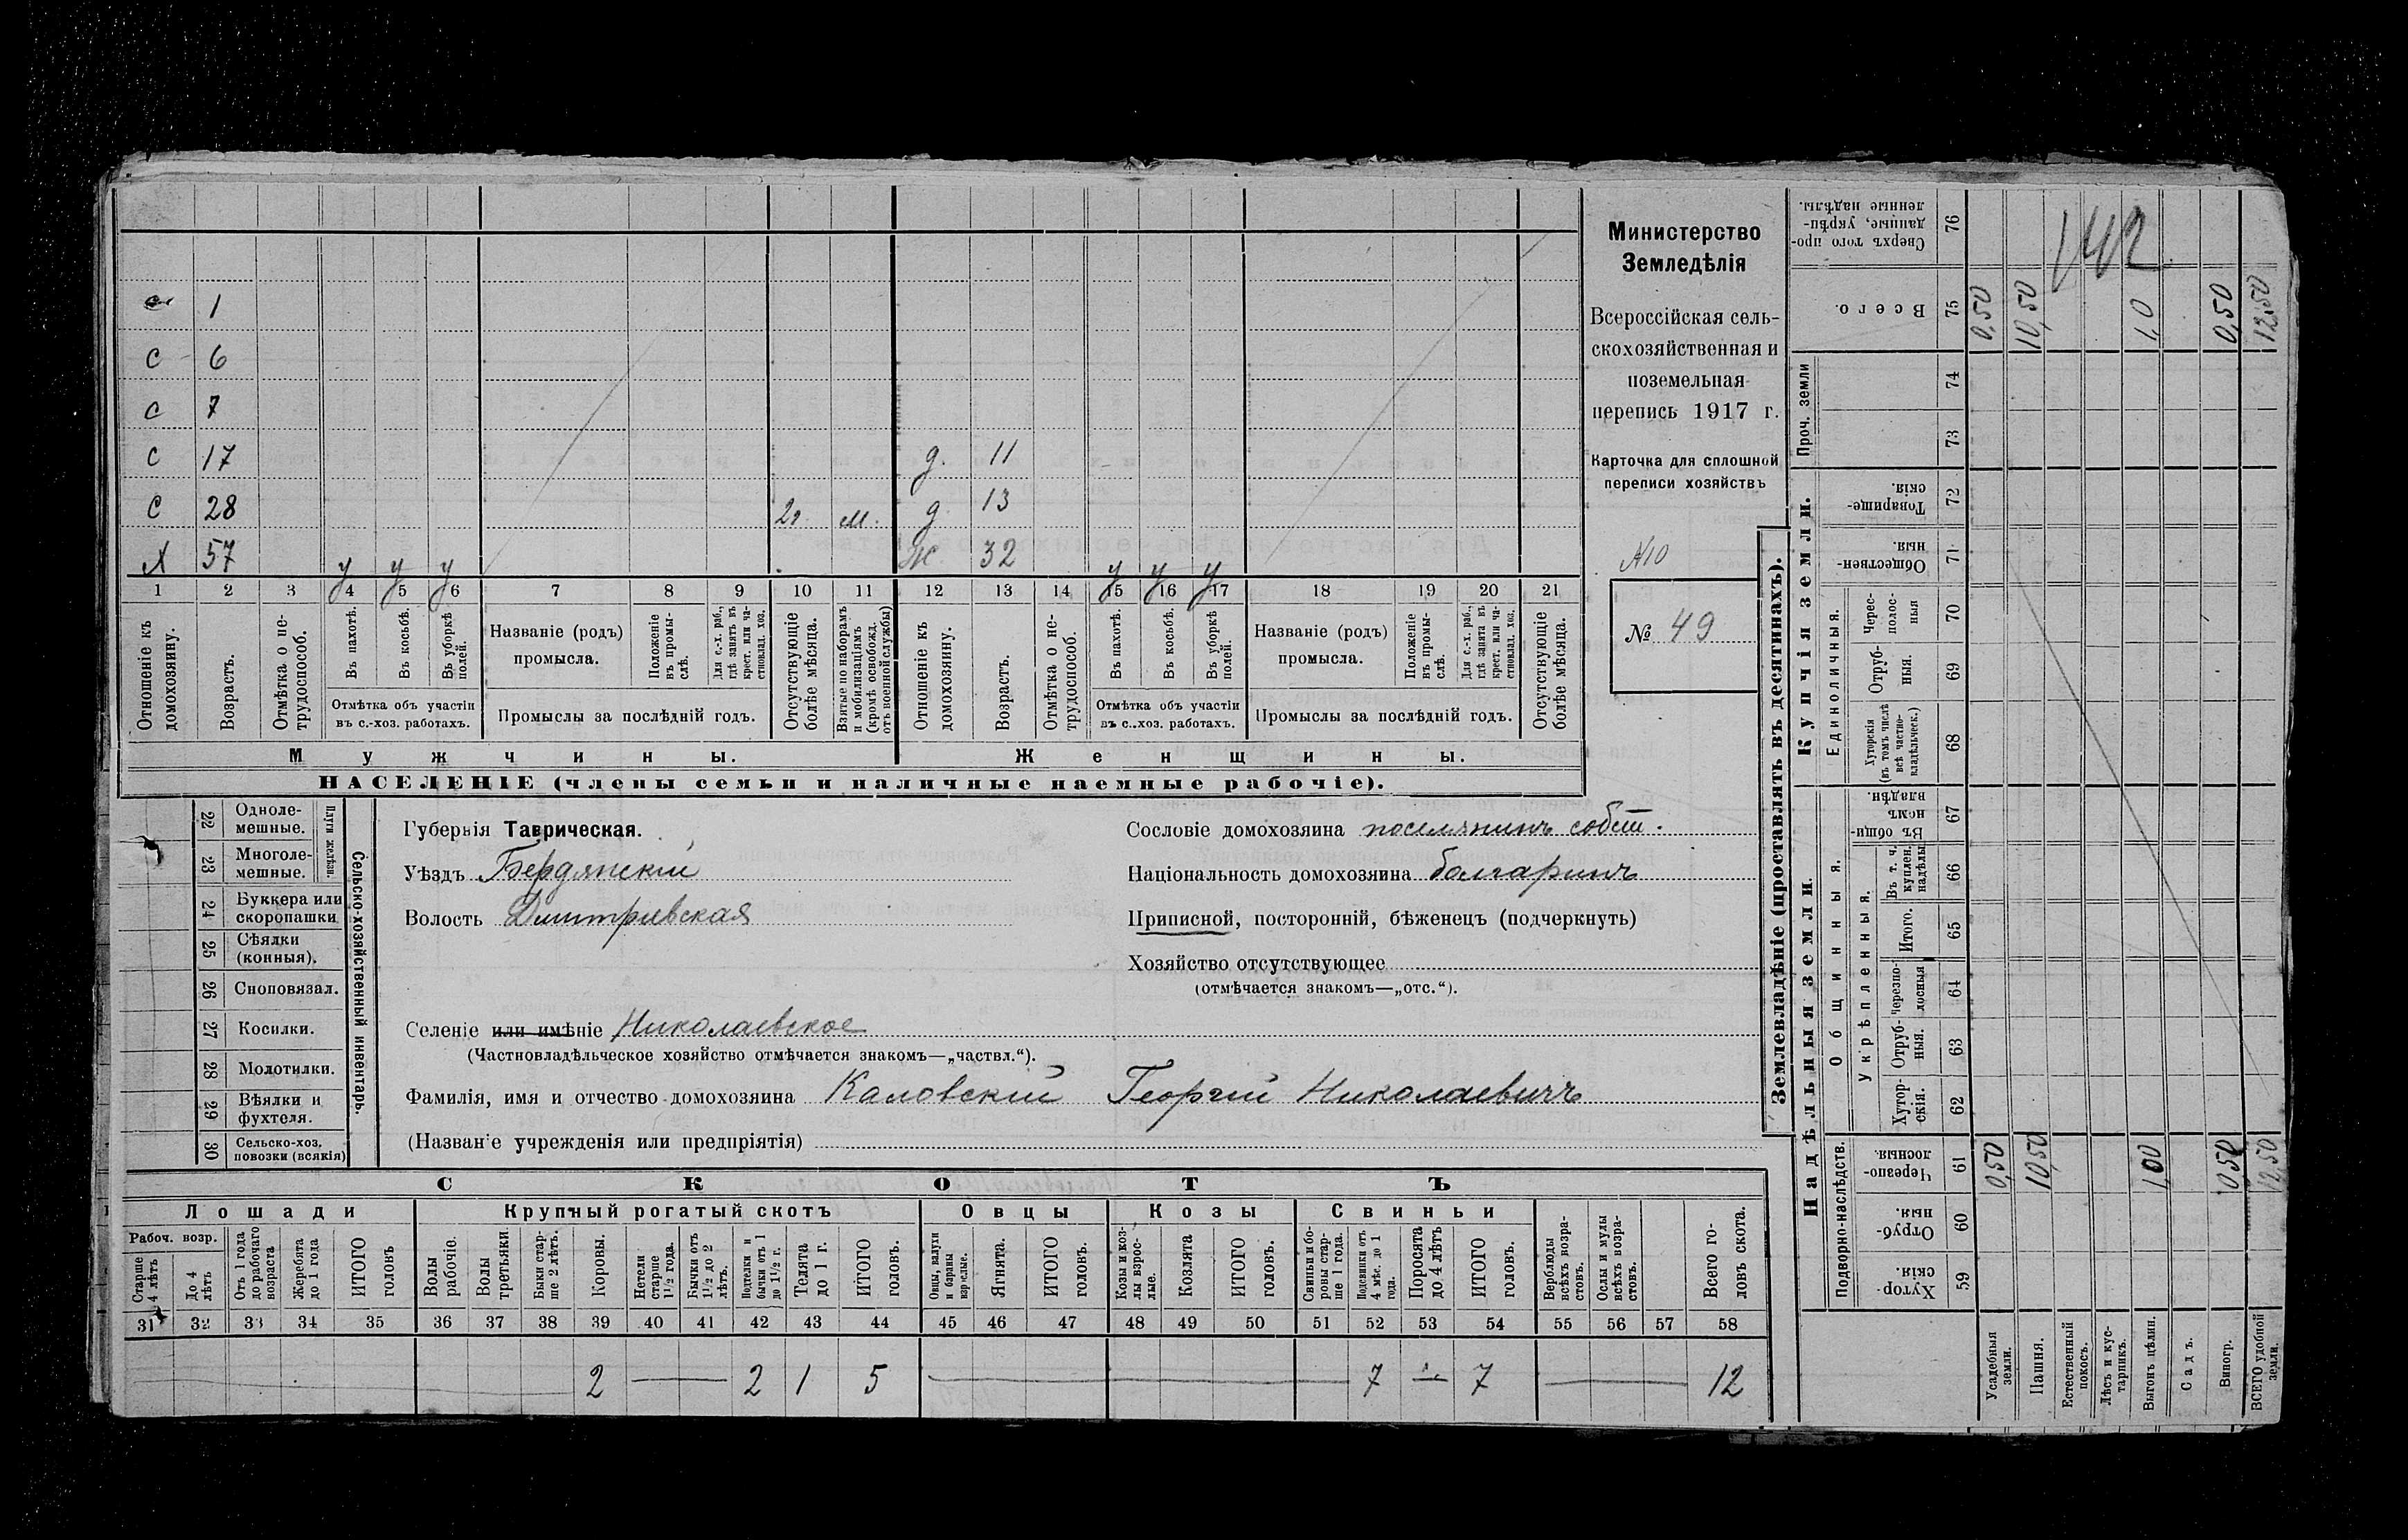 с 1
с 6
с 7
с 17 д. 11
с 28 2г. м. д 13
Х 57 у у у Ж. 32 у у у
1 2 3 4 5 6 7 8 9 10 11 12 13 14 15 16 17 18 19 20 21
Отношеніе къ домохозяину.
Возрастъ.
Отмѣтка о не-трудоспособ.
Въ пахотѣ.
Въ косьбѣ.
Въ уборкѣ полей.
Отмѣтка объ участіи
въ с.-хоз. работахъ.
Названіе (родъ)
промысла.
Положеніе въ промы-слѣ.
Для с.-х. раб., гдѣ занятъ въ крест. или ча-стновлад. хоз.
Промыслы за послѣдній годъ.
Отсутствующіе болѣе мѣсяца.
Взятые по наборамъ и мобилизаціямъ (кромѣ освобожд. отъ военной службы)
Отношеніе къ домохозяину.
Возрастъ.
Отмѣтка о не-трудоспособ.
Въ пахотѣ.
Въ косьбѣ.
Въ уборкѣ полей.
Отмѣтка объ участіи
въ с.-хоз. работахъ.
Названіе (родъ)
промысла.
Положеніе въ промы-слѣ.
Для с.-х. раб., гдѣ занята въ крест. или ча-стновлад. хоз.
Промыслы за послѣдній годъ.
Отсутствующіе болѣе мѣсяца.
Мужчины. Женщины.
НАСЕЛЕНІЕ (члены семьи и наличные наемные рабочіе).
Министерство
Земледѣлія
Всероссійская сель-
скохозяйственная и
поземельная
перепись 1917 г.
Карточка для сплошной
переписи хозяйствъ
№ 49
22 Одноле-
мешные.
23 Многоле-
мешные.
Плуги желѣзн.
24 Буккера или
скоропашки
25 Сѣялки
(конныя).
26 Сноповязал.
27 Косилки.
28 Молотилки.
29 Вѣялки и
фухтеля.
30 Сельско-хоз.
повозки (всякія)
Сельско-хозяйственный инвентарь.
Губернія Таврическая.
Уѣздъ Бердянскій
Волость Дмитріевская
Селеніе или имѣніе Николаевское
(Частновладѣльческое хозяйство отмѣчается знакомъ—„частвл.“).
Фамилія, имя и отчество домохозяина Каловскій Георгій Николаевичъ
(Названіе учрежденія или предпріятія)
Сословіе домохозяина поселянинъ собств.
Національность домохозяина болгаринъ
Приписной, посторонній, бѣженецъ (подчеркнуть)
Хозяйство отсутствующее
(отмѣчается знакомъ—„отс.“).
СКОТЪ
Лошади Крупный рогатый скотъ Овцы Козы Свиньи
Рабоч. возр.
Старше 4 лѣтъ
До 4 лѣтъ
Отъ 1 года до рабочаго возраста
Жеребята до 1 года
ИТОГО головъ
Волы рабочіе.
Волы третьяки.
Быки стар-ше 2 лѣтъ.
Коровы.
Нетели старше 1½ года.
Бычки отъ 1½ до 2 лѣтъ.
Подтелки и бычки отъ 1 до 1½ г.
Телята до 1 г.
ИТОГО головъ.
Овцы, валухи и бараны взрослые.
Ягнята.
ИТОГО головъ.
Козы и коз-лы взрос-лые.
Козлята
ИТОГО головъ.
Свиньи и бо-ровы стар-ше 1 года.
Подсвинки отъ 4 мѣс. до 1 года.
Поросята до 4 лѣтъ
ИТОГО головъ.
Верблюды всѣхъ возра-стовъ.
Ослы и мулы всѣхъ возра-стовъ.
Всего го-ловъ скота.
31 32 33 34 35 36 37 38 39 40 41 42 43 44 45 46 47 48 49 50 51 52 53 54 55 56 57 58
2 2 1 5 7 7 12
Землевладѣніе (проставлять въ десятинахъ).
Надѣльныя земли.
Купчія земли.
Проч. земли
Подворно-наслѣдств.
Общинныя.
Укрѣпленныя.
Единоличныя.
Сверхъ того про-данные, укрѣп-ленные надѣлы. 76
Всего. 75 0,50 10,50 1,0 0,50 12,50
74
73
Товарище-скія. 72
Обществен-ныя. 71
Черес-полос-ныя 70
Отруб-ныя. 69
Хуторскія (въ томъ числѣ всѣ частно-владѣльческ.) 68
Въ общи-номъ владѣн. 67
Въ т. ч. куплен. надѣлы 66
Итого. 65
Черезпо-лосныя 64
Отруб-ныя. 63
Хутор-скія. 62
Черезпо-лосныя. 61 0,50 10,50 1,00 0,50 12,50
Отруб-ныя. 60
Хутор-скія. 59
Усадебныя земли.
Пашня.
Естественный покосъ.
Лѣсъ и кус-тарникъ.
Выгонъ цѣлин.
Садъ.
Виногр.
ВСЕГО удобной земли.